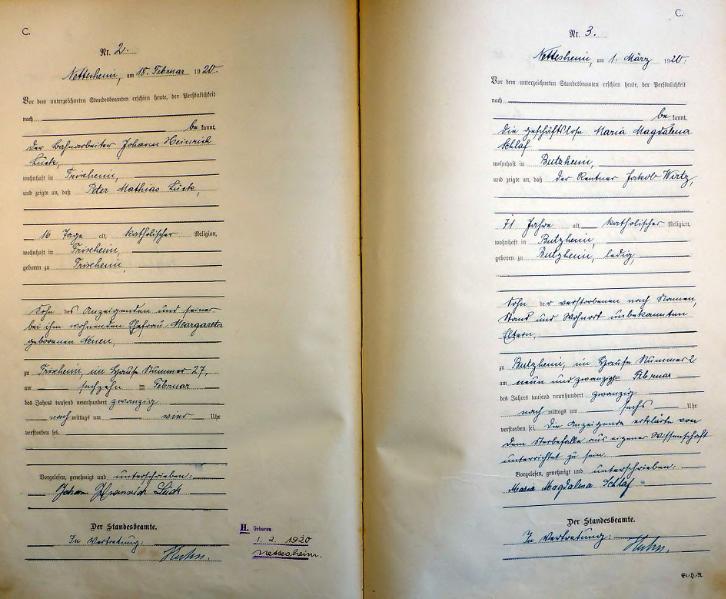 C.
Nr. 2.
Nettesheim, am 18. Februar 1920.
Vor dem unterzeichneten Standesbeamten erschien heute, der Persönlichkeit
nach
be kannt,
der Bahnarbeiter Johann Heinrich
Lück,
wohnhaft in Frixheim,
und zeigte an, daß Peter Mathias Lück,
16 Tage alt, katholischer Religion,
wohnhaft in Frixheim,
geboren zu Frixheim,
Sohn des Anzeigenden und seiner
bei ihm wohnenden Ehefrau Margaretha
geborenen
zu Frixheim, im Hause Nummer 27,
am sechzehn = Februar
des Jahres tausend neunhundert zwanzig
nach mittags um vier Uhr
verstorben sei.
Vorgelesen, genehmigt und unterschrieben:
Johann Heinrich Lück
Der Standesbeamte.
In Vertretung:
H. Geboren
1. 2. 1920
Nettesheim.
C.
Nr. 3.
Nettesheim, am 1. März 1920.
Vor dem unterzeichneten Standesbeamten erschien heute, der Persönlichkeit
nach
be kannt,
die geschäftslose Maria Magdalena
Schlaf
wohnhaft in Butzheim,
und zeigte an, daß der Rentner Jakob Wirtz,
71 Jahre alt, katholischer Religion,
wohnhaft in Butzheim,
geboren zu Butzheim, ledig,
Sohn der verstorbenen nach Namen,
Stand und Wohnort unbekannten
Eltern,
zu Butzheim, im Hause Nummer 2
am neun und zwanzig Februar
des Jahres tausend neunhundert zwanzig
nach mittags um sechs Uhr
verstorben sei. Die Anzeigende erklärte von
dem Sterbefalle aus eigener Wissenschaft
unterrichtet zu sein.
Vorgelesen, genehmigt und unterschrieben:
Maria Magdalena Schlaf
Der Standesbeamte.
In Vertretung: